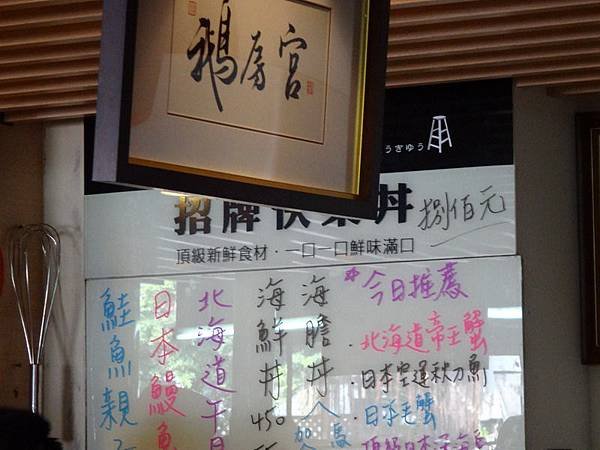 鵝房宮
うぎゅう
招牌快樂丼 捌佰元
頂級新鮮食材・一口一口鮮味滿口
*今日推薦
・北海道帝王蟹
・日本空運秋刀魚
・日本毛蟹
海膽丼
海鮮丼 450
北海道干貝
日本鰻魚
鮭魚親子